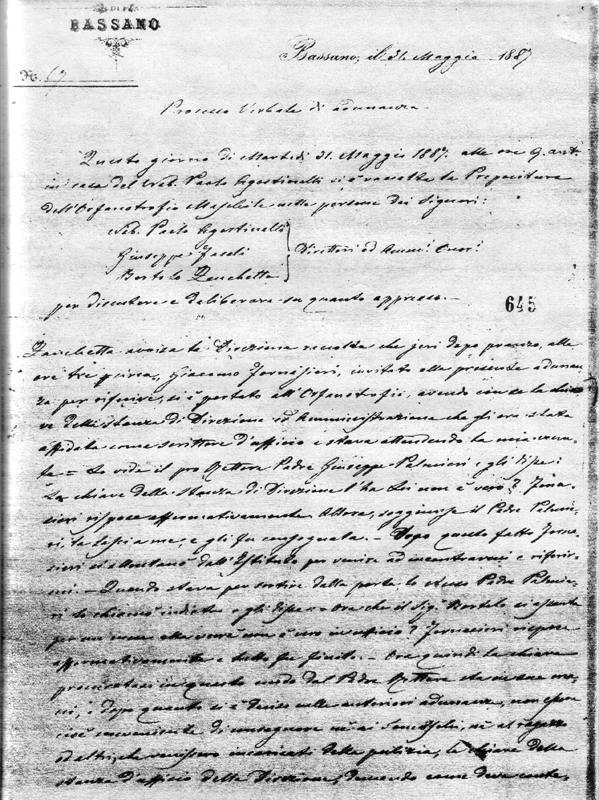 DI
BASSANO
N. 67
Bassano, il 31. Maggio 1887
Processo Verbale di adunanza.
Questo giorno di Martedì 31. Maggio 1887. alle ore 9. ant.
in casa del Nob. Paolo Agostinelli si è raccolta la Prepositura
dell'Orfanotrofio Maschile nelle persone dei Signori:
Nob. Paolo Agostinelli
Giuseppe Fasoli
Bortolo Zanchetta
Direttori ed Ammi. Onori.
per discutere e deliberare su quanto appresso.
645
Zanchetta avvisa la Direzione raccolta che jeri dopo pranzo, alle
ore tre circa, Giacomo Fornasieri, invitato alla presente adunan
za per riferire, si è portato all'Orfanotrofio, avendo con se la chia
ve della stanza di Direzione ed Amministrazione che gli era stata
affidata come scrittore d'ufficio e stava attendendo la mia venu
ta = Lo vide il pro Rettore Padre Giuseppe Palmieri e gli disse:
La chiave della stanza di Direzione l'ha Lei non è vero? Forna
sieri rispose affermativamente. Allora, soggiunse il Padre Palmie
ri, la lascia a me, e gli fu consegnata. = Dopo questo fatto Forna
sieri si allontanò dall'Istituto per venire ad incontrarmi e riferir
mi. = Quando stava per sortire dalla porta, lo stesso Padre Palmie
ri lo chiamò indietro e gli disse = Ora che il Sig. Bortolo si
per un non è vero in ufficio? Fornasieri rispose
affermativamente e tutto fu finito. = Ora quindi la chiave
in questo modo dal Padre Rettore che
dopo quanto si è deciso nelle anteriori adunanze, non essere
cioè conveniente di consegnare nè ai nè al ragazzo
ed altri, che venissero incaricati della pulizia, la chiave della
stanza d'ufficio della Direzione, dovendo come deve contenere